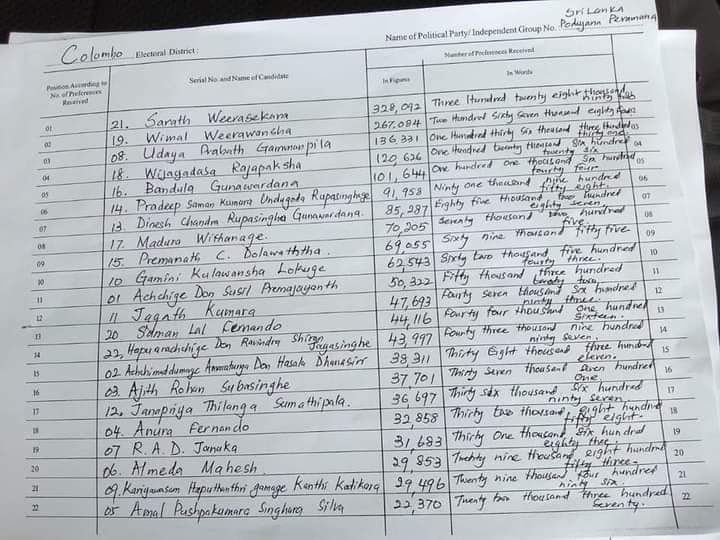 Colombo Electoral District : Name of Political Party/ Independent Group No. Sri Lanka Podujana Peramuna
Position According to No. of Preferences Received | Serial No. and Name of Candidate | Number of Preferences Received
In Figures | In Words
01 21. Sarath Weerasekara 328,092 Three Hundred twenty eight thousand ninty
02 19. Wimal Weerawansha 267,084 Two Hundred Sixty Seven thousand eighty four 02
03 08. Udaya Prabath Gammanpila 136,331 One Hundred thirty Six thousand three hundred thirty one 03
04 18. Wijayadasa Rajapaksha 120,626 One Hundred twenty thousand Six hundred twenty six 04
05 16. Bandula Gunawardana 101,644 One hundred one thousand Six hundred fourty four 05
06 14. Pradeep Saman Kumara Undugoda Rupasinghage 91,958 Ninty one thousand nine hundred fifty eight. 06
07 13. Dinesh Chandra Rupasingha Gunawardana. 85,287 Eighty five thousand two hundred eighty seven 07
08 17. Madura Withanage. 70,205 Seventy thousand two hundred five 08
09 15. Premanath C. Dolawaththa. 69,055 Sixty nine thousand fifty five 09
10 10 Gamini Kulawansha Lokuge 62,543 Sixty two thousand five hundred fourty three. 10
11 01 Achchige Don Susil Premajayanth 50,322 Fifty thousand three hundred twenty two 11
12 11 Jagath Kumara 47,693 Fourty seven thousand Six hundred ninty three. 12
13 20 Sidman Lal Fernando 44,116 Fourty four thousand One hundred Sixteen. 13
14 22, Hapuarachchige Don Ravindra Shiran Jayasinghe 43,997 Fourty three thousand nine hundred ninty Seven. 14
15 02. Don Hasala Dhanasiri 38,311 Thirty Eight thousand three hundred eleven. 15
16 03. Ajith Rohan Subasinghe 37,701 Thirty Seven thousand Seven hundred One. 16
17 12. Janapriya Thilanga Sumathipala. 36,697 Thirty six thousand Six hundred ninty Seven 17
18 04. Anura Fernando 32,858 Thirty two thousand eight hundred fifty eight. 18
19 07 R. A. D. Janaka 31,683 Thirty One thousand Six hundred eighty three 19
20 06. Almeda Mahesh 29,853 Twenty nine thousand eight hundred fifty three. 20
21 09. Kariyawasam Haputhanthri gamage Kanthi Kodikara 29,496 Twenty nine thousand four hundred ninty six. 21
22 05 Amal Pushpakumara Singhara Silva 22,370 Twenty two thousand three hundred Seventy. 22